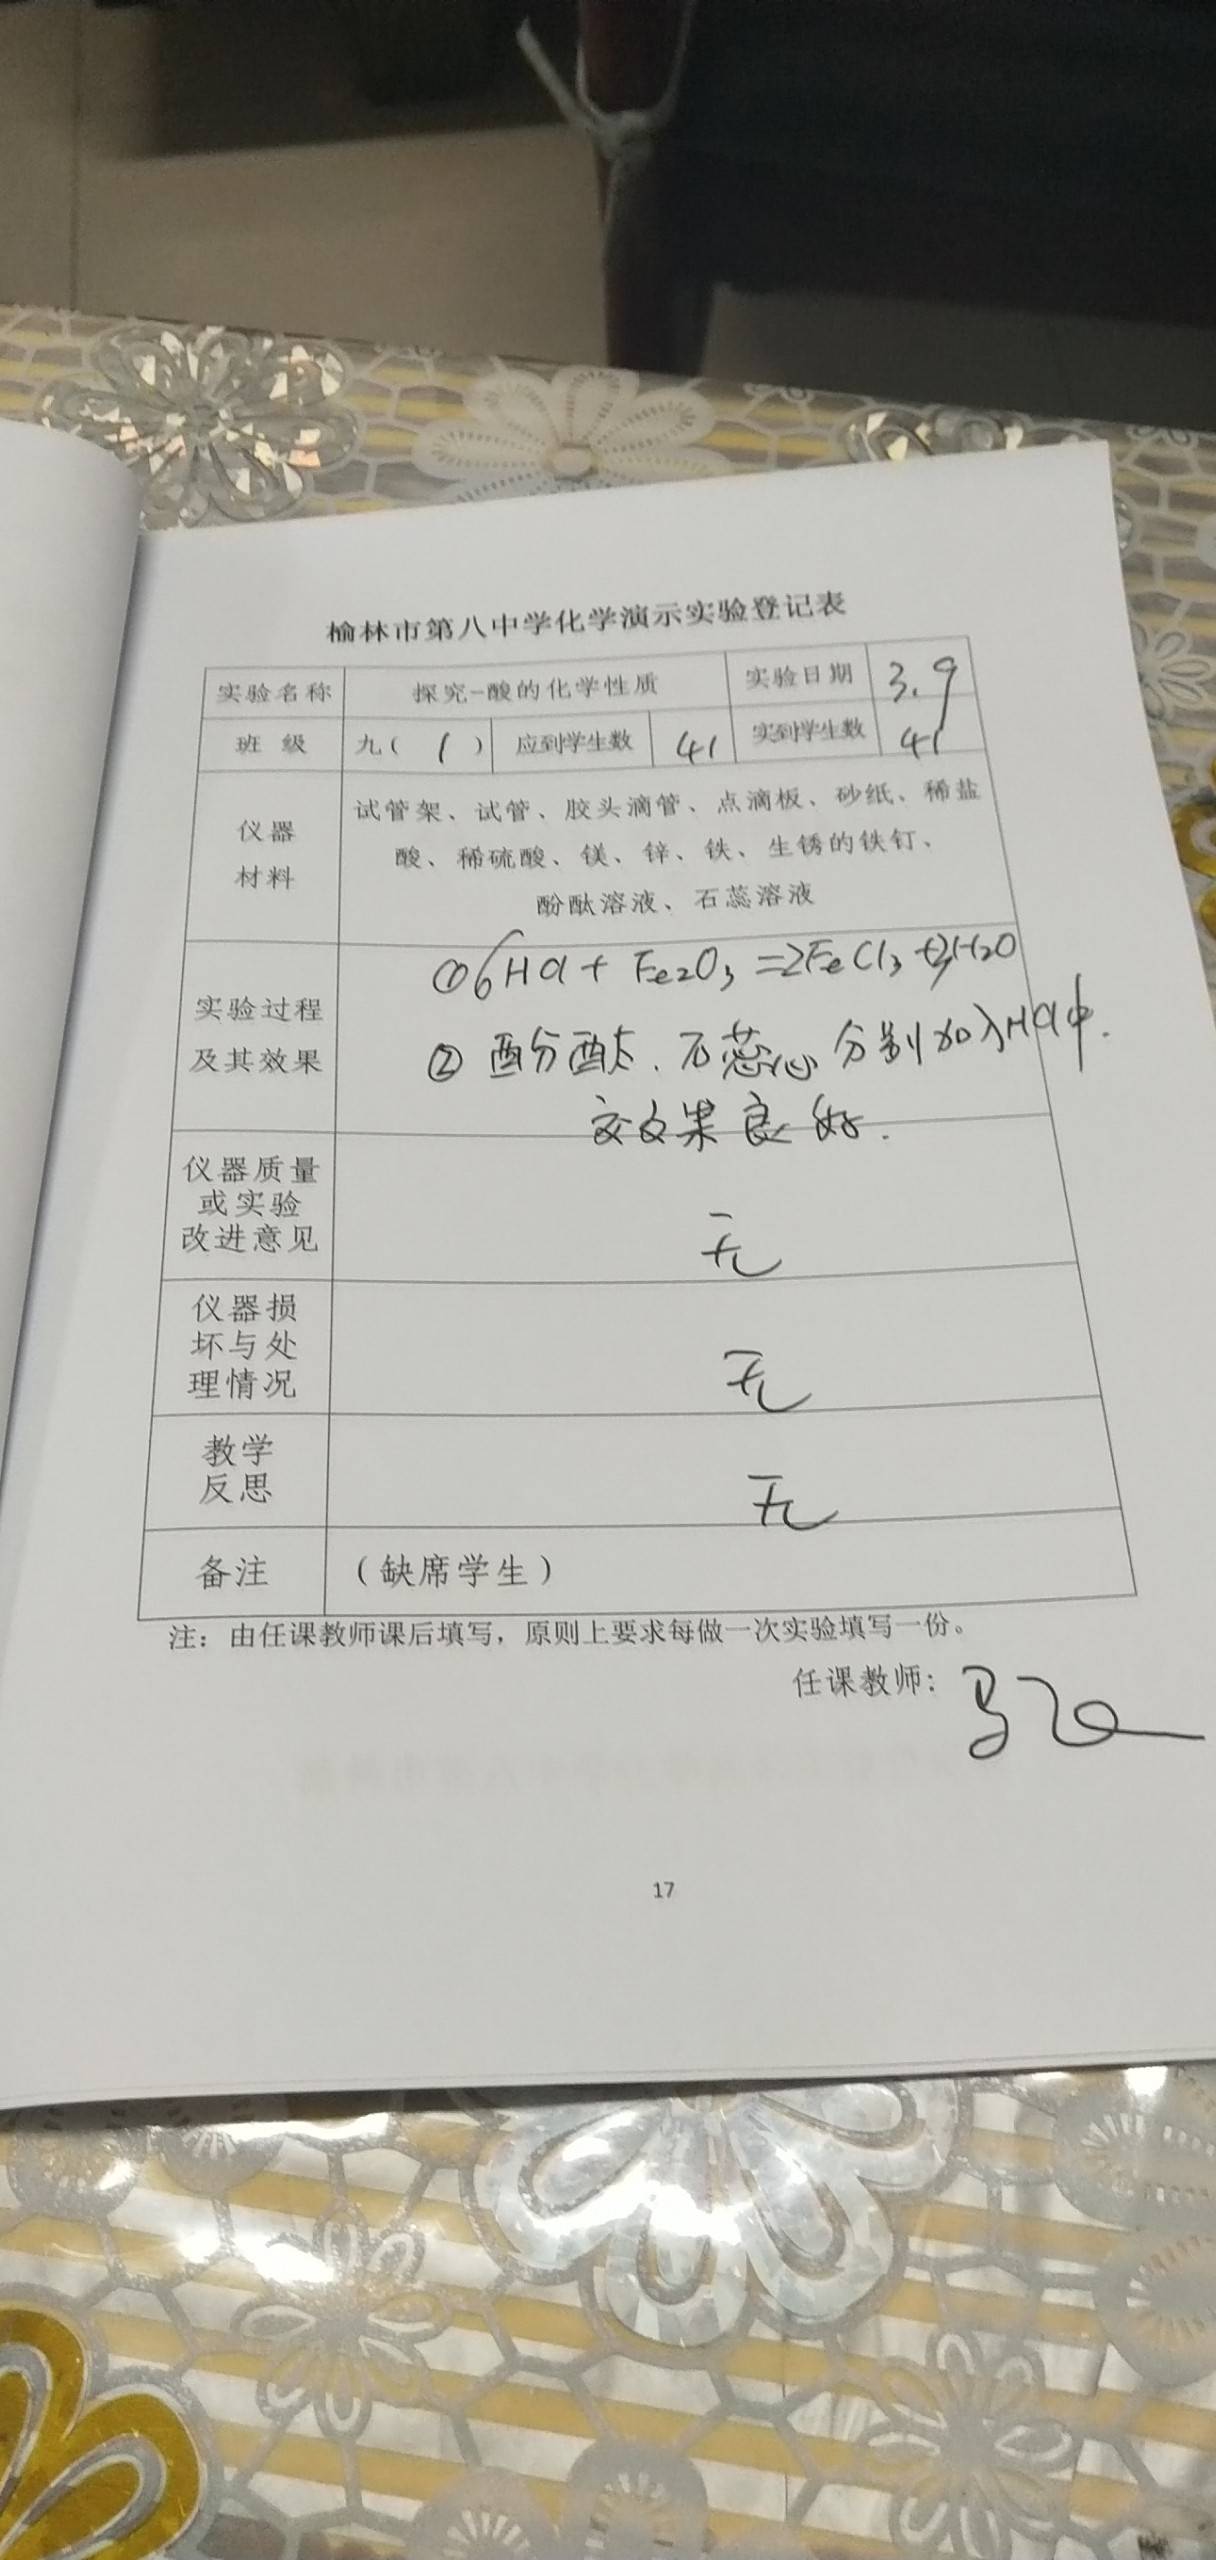 榆林市第八中学化学演示实验登记表
实验名称 探究-酸的化学性质 实验日期 3.9
班 级 九( 1 ) 应到学生数 41 实到学生数 41
仪器
材料
试管架、试管、胶头滴管、点滴板、砂纸、稀盐
酸、稀硫酸、镁、锌、铁、生锈的铁钉、
酚酞溶液、石蕊溶液
实验过程
及其效果
①6HCl + Fe₂O₃ =2FeCl₃ +3H₂O
② 酚酞、石蕊 分别加入HCl中.
效果良好.
仪器质量
或实验
改进意见
无
仪器损
坏与处
理情况
无
教学
反思
无
备注 (缺席学生)
注：由任课教师课后填写，原则上要求每做一次实验填写一份。
任课教师：
17